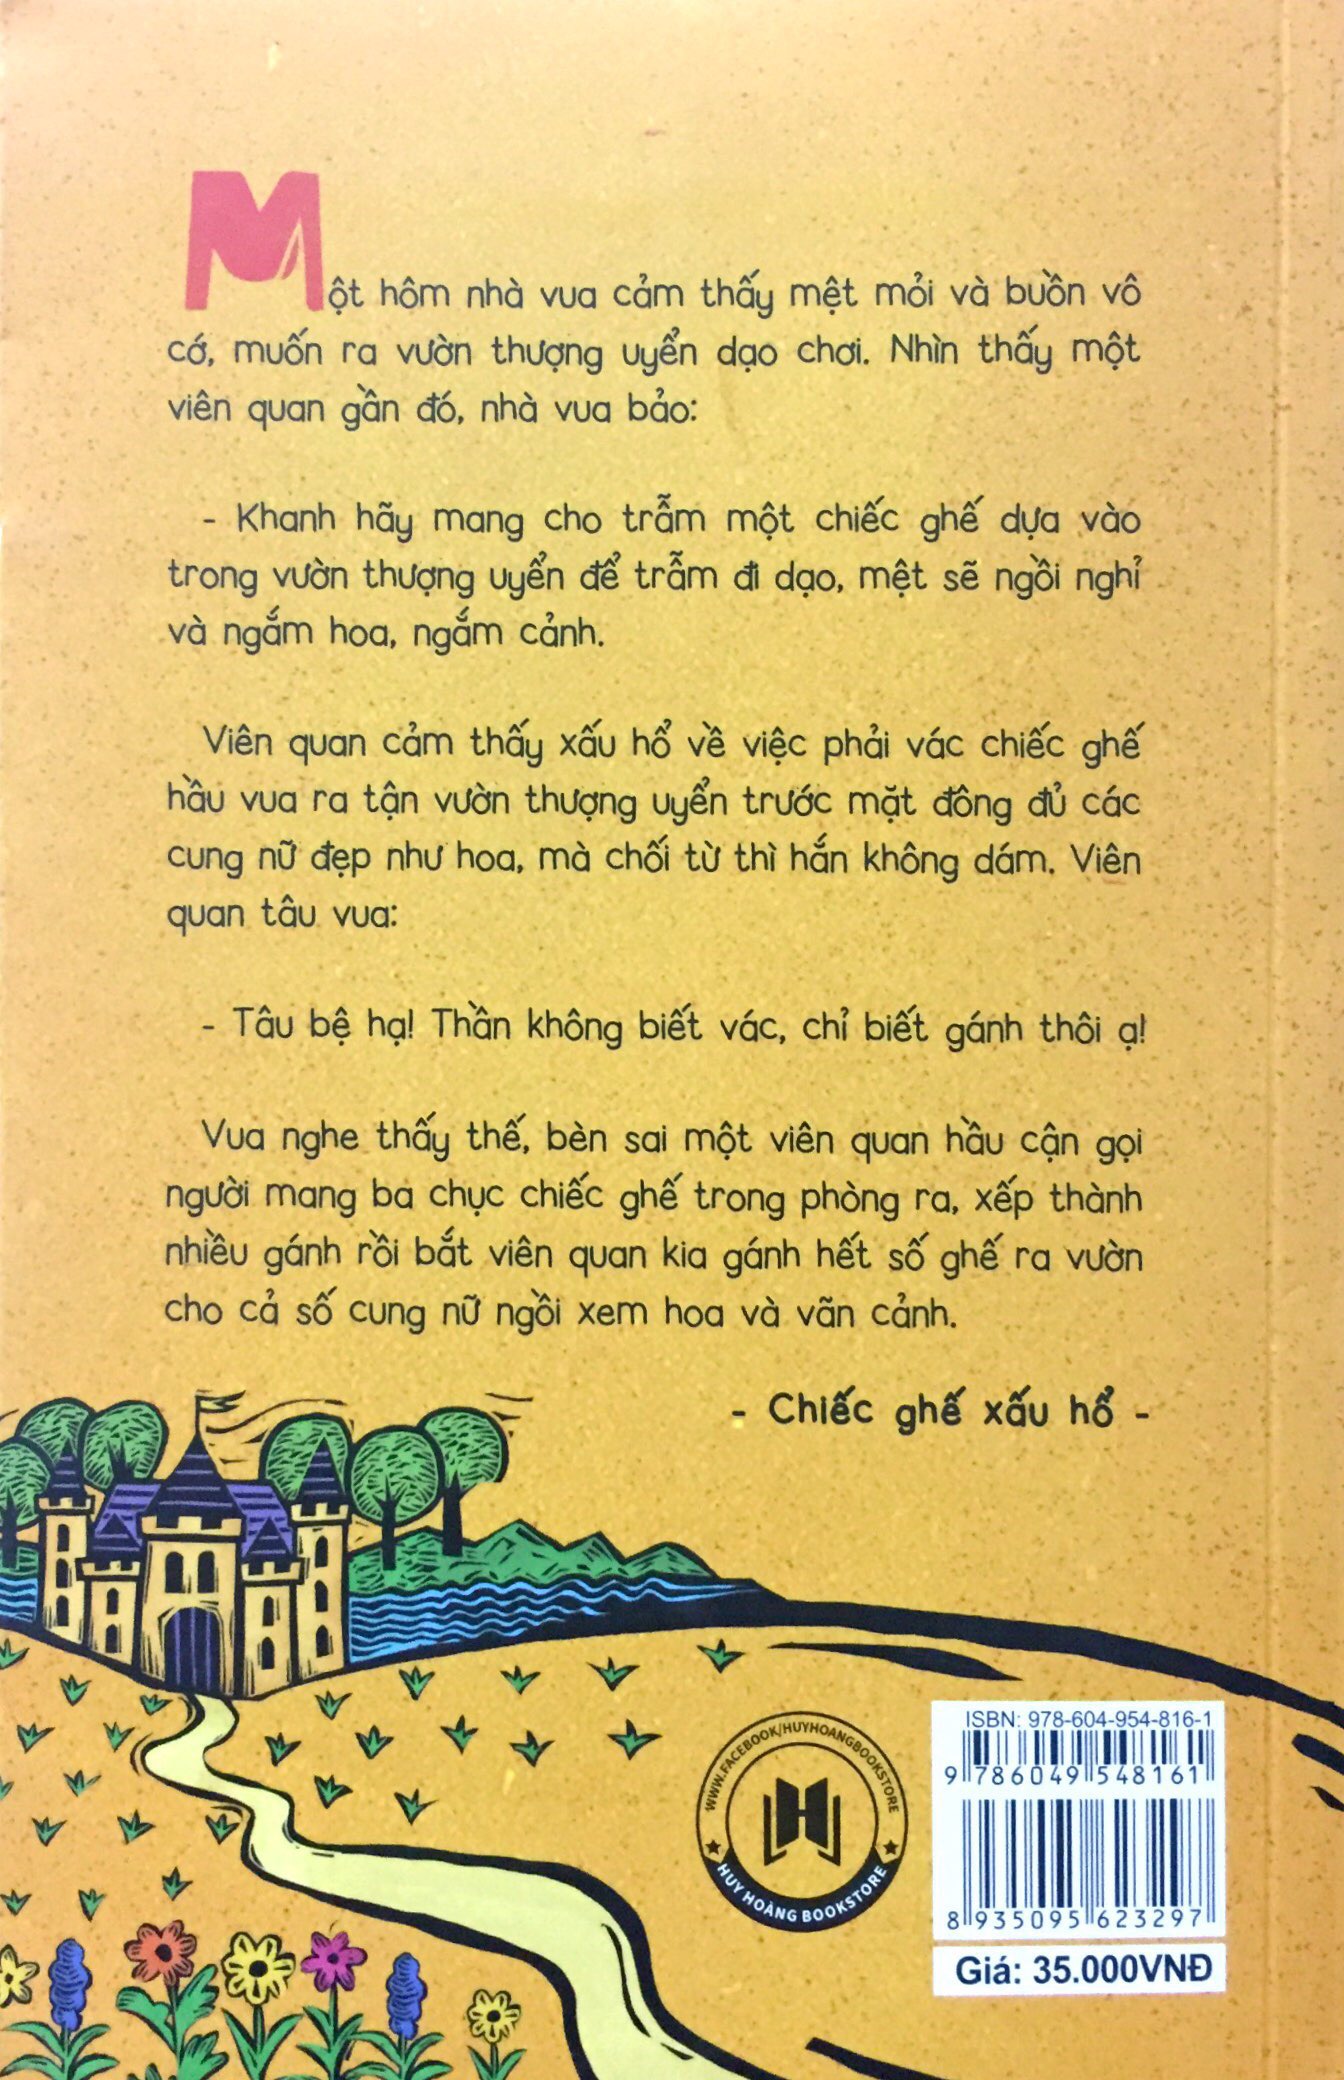 Một hôm nhà vua cảm thấy mệt mỏi và buồn vô
cớ, muốn ra vườn thượng uyển dạo chơi. Nhìn thấy một
viên quan gần đó, nhà vua bảo:
- Khanh hãy mang cho trẫm một chiếc ghế dựa vào
trong vườn thượng uyển để trẫm đi dạo, mệt sẽ ngồi nghỉ
và ngắm hoa, ngắm cảnh.
Viên quan cảm thấy xấu hổ về việc phải vác chiếc ghế
hầu vua ra tận vườn thượng uyển trước mặt đông đủ các
cung nữ đẹp như hoa, mà chối từ thì hắn không dám. Viên
quan tâu vua:
- Tâu bệ hạ! Thần không biết vác, chỉ biết gánh thôi ạ!
Vua nghe thấy thế, bèn sai một viên quan hầu cận gọi
người mang ba chục chiếc ghế trong phòng ra, xếp thành
nhiều gánh rồi bắt viên quan kia gánh hết số ghế ra vườn
cho cả số cung nữ ngồi xem hoa và vãn cảnh.
- Chiếc ghế xấu hổ -
WWW.FACEBOOK/HUYHOANGBOOKSTORE
HUY HOÀNG BOOKSTORE
ISBN: 978-604-954-816-1
9 786049 548161
8 935095 623297
Giá: 35.000VNĐ